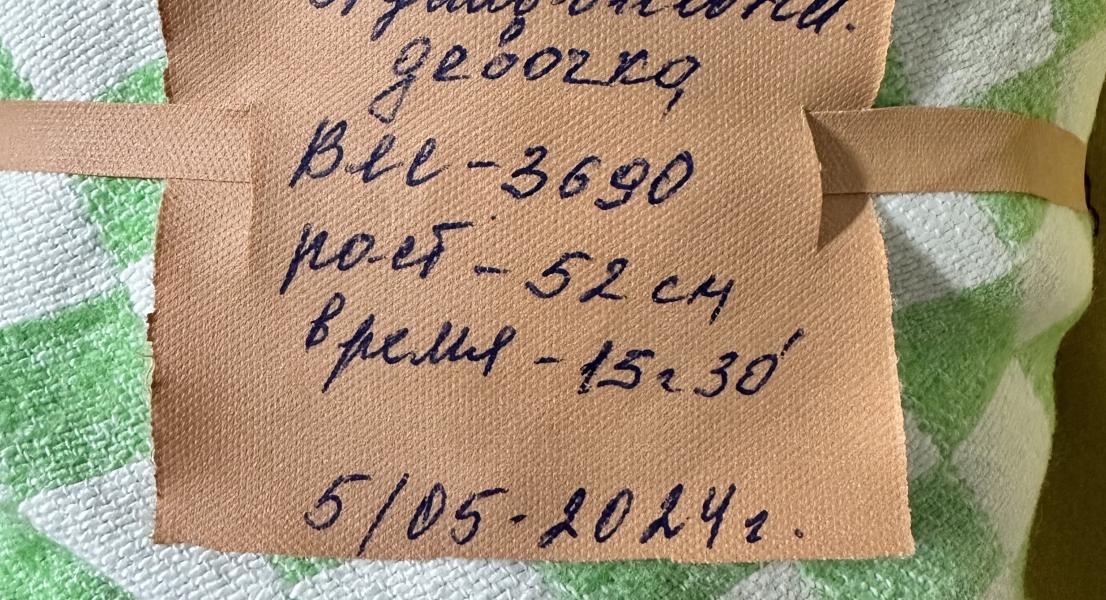 девочка
Вес - 3690
рост - 52 см
время - 15ч 30'
5/05-2024г.